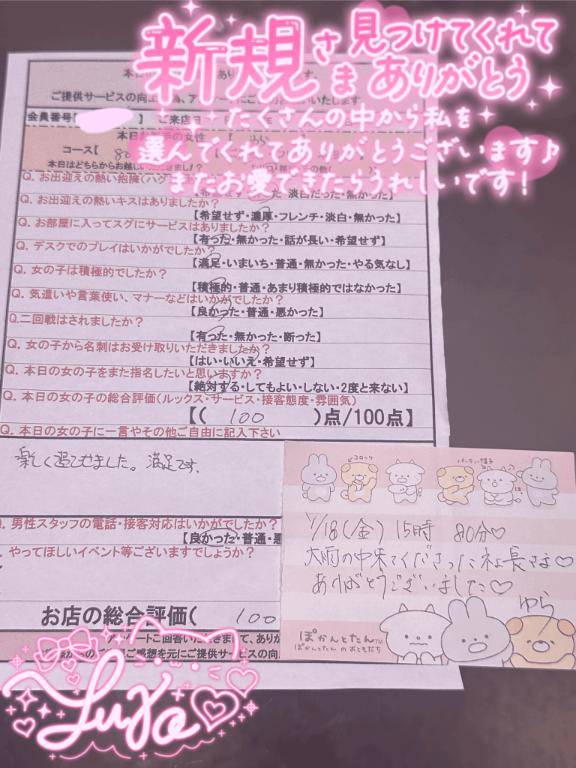 新規さま
見つけてくれて
ありがとう
たくさんの中から私を
選んでくれてありがとうございます♪
またお愛できたらうれしいです!
ご提供サービスの向上
会員番号【 】ご来店日
コース【 80
Q. お出迎えの熱い抱擁(ハグ
淡白だった・無かった】
Q. お出迎えの熱いキスはありましたか?
【希望せず・濃厚・フレンチ・淡白・無かった】
Q. お部屋に入ってスグにサービスはありましたか?
【有った・無かった・話が長い・希望せず】
Q. デスクでのプレイはいかがでしたか?
【満足・いまいち・普通・無かった・やる気なし】
Q. 女の子は積極的でしたか?
【積極的・普通・あまり積極的ではなかった】
Q. 気遣いや言葉使い、マナーなどはいかがでしたか?
【良かった・普通・悪かった】
Q.二回戦はされましたか?
【有った・無かった・断った】
Q. 女の子から名刺はお受け取りいただきましたか?
【はい・いいえ・希望せず】
Q. 本日の女の子をまた指名したいと思いますか?
【絶対する・してもよい・しない・2度と来ない】
Q. 本日の女の子の総合評価(ルックス・サービス・接客態度・雰囲気)
【( 100 )点/100点】
Q. 本日の女の子に一言やその他ご自由に記入下さい
楽しく過せました。満足です。
Q. 男性スタッフの電話・接客対応はいかがでしたか?
【良かった・普通・悪
やってほしいイベント等ございますでしょうか?
お店の総合評価( 100
アンケートご回答いただきまして、あり
ご感想を元にご提供サービスの向
7/18(金) 15時 80分♡
大雨の中来てくださった社長さま♡
ありがとうございました♡
ゆら
ぽかんとたん
ぽかんとたんのおともだち
Yura